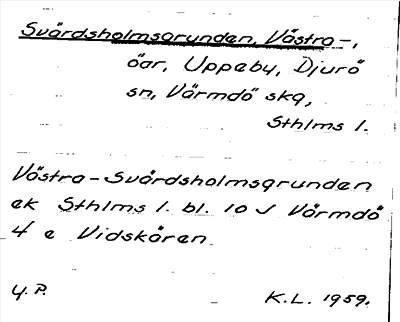 Svärdsholmsgrunden, Västra –,
öar, Uppeby, Djurö
sn, Värmdö skg,
Sthlms l.
Västra – Svärdsholmsgrunden
ek Sthlms l. bl. 10 J Värmdö
4 e Vidskären
Y. P.
K.L. 1959.